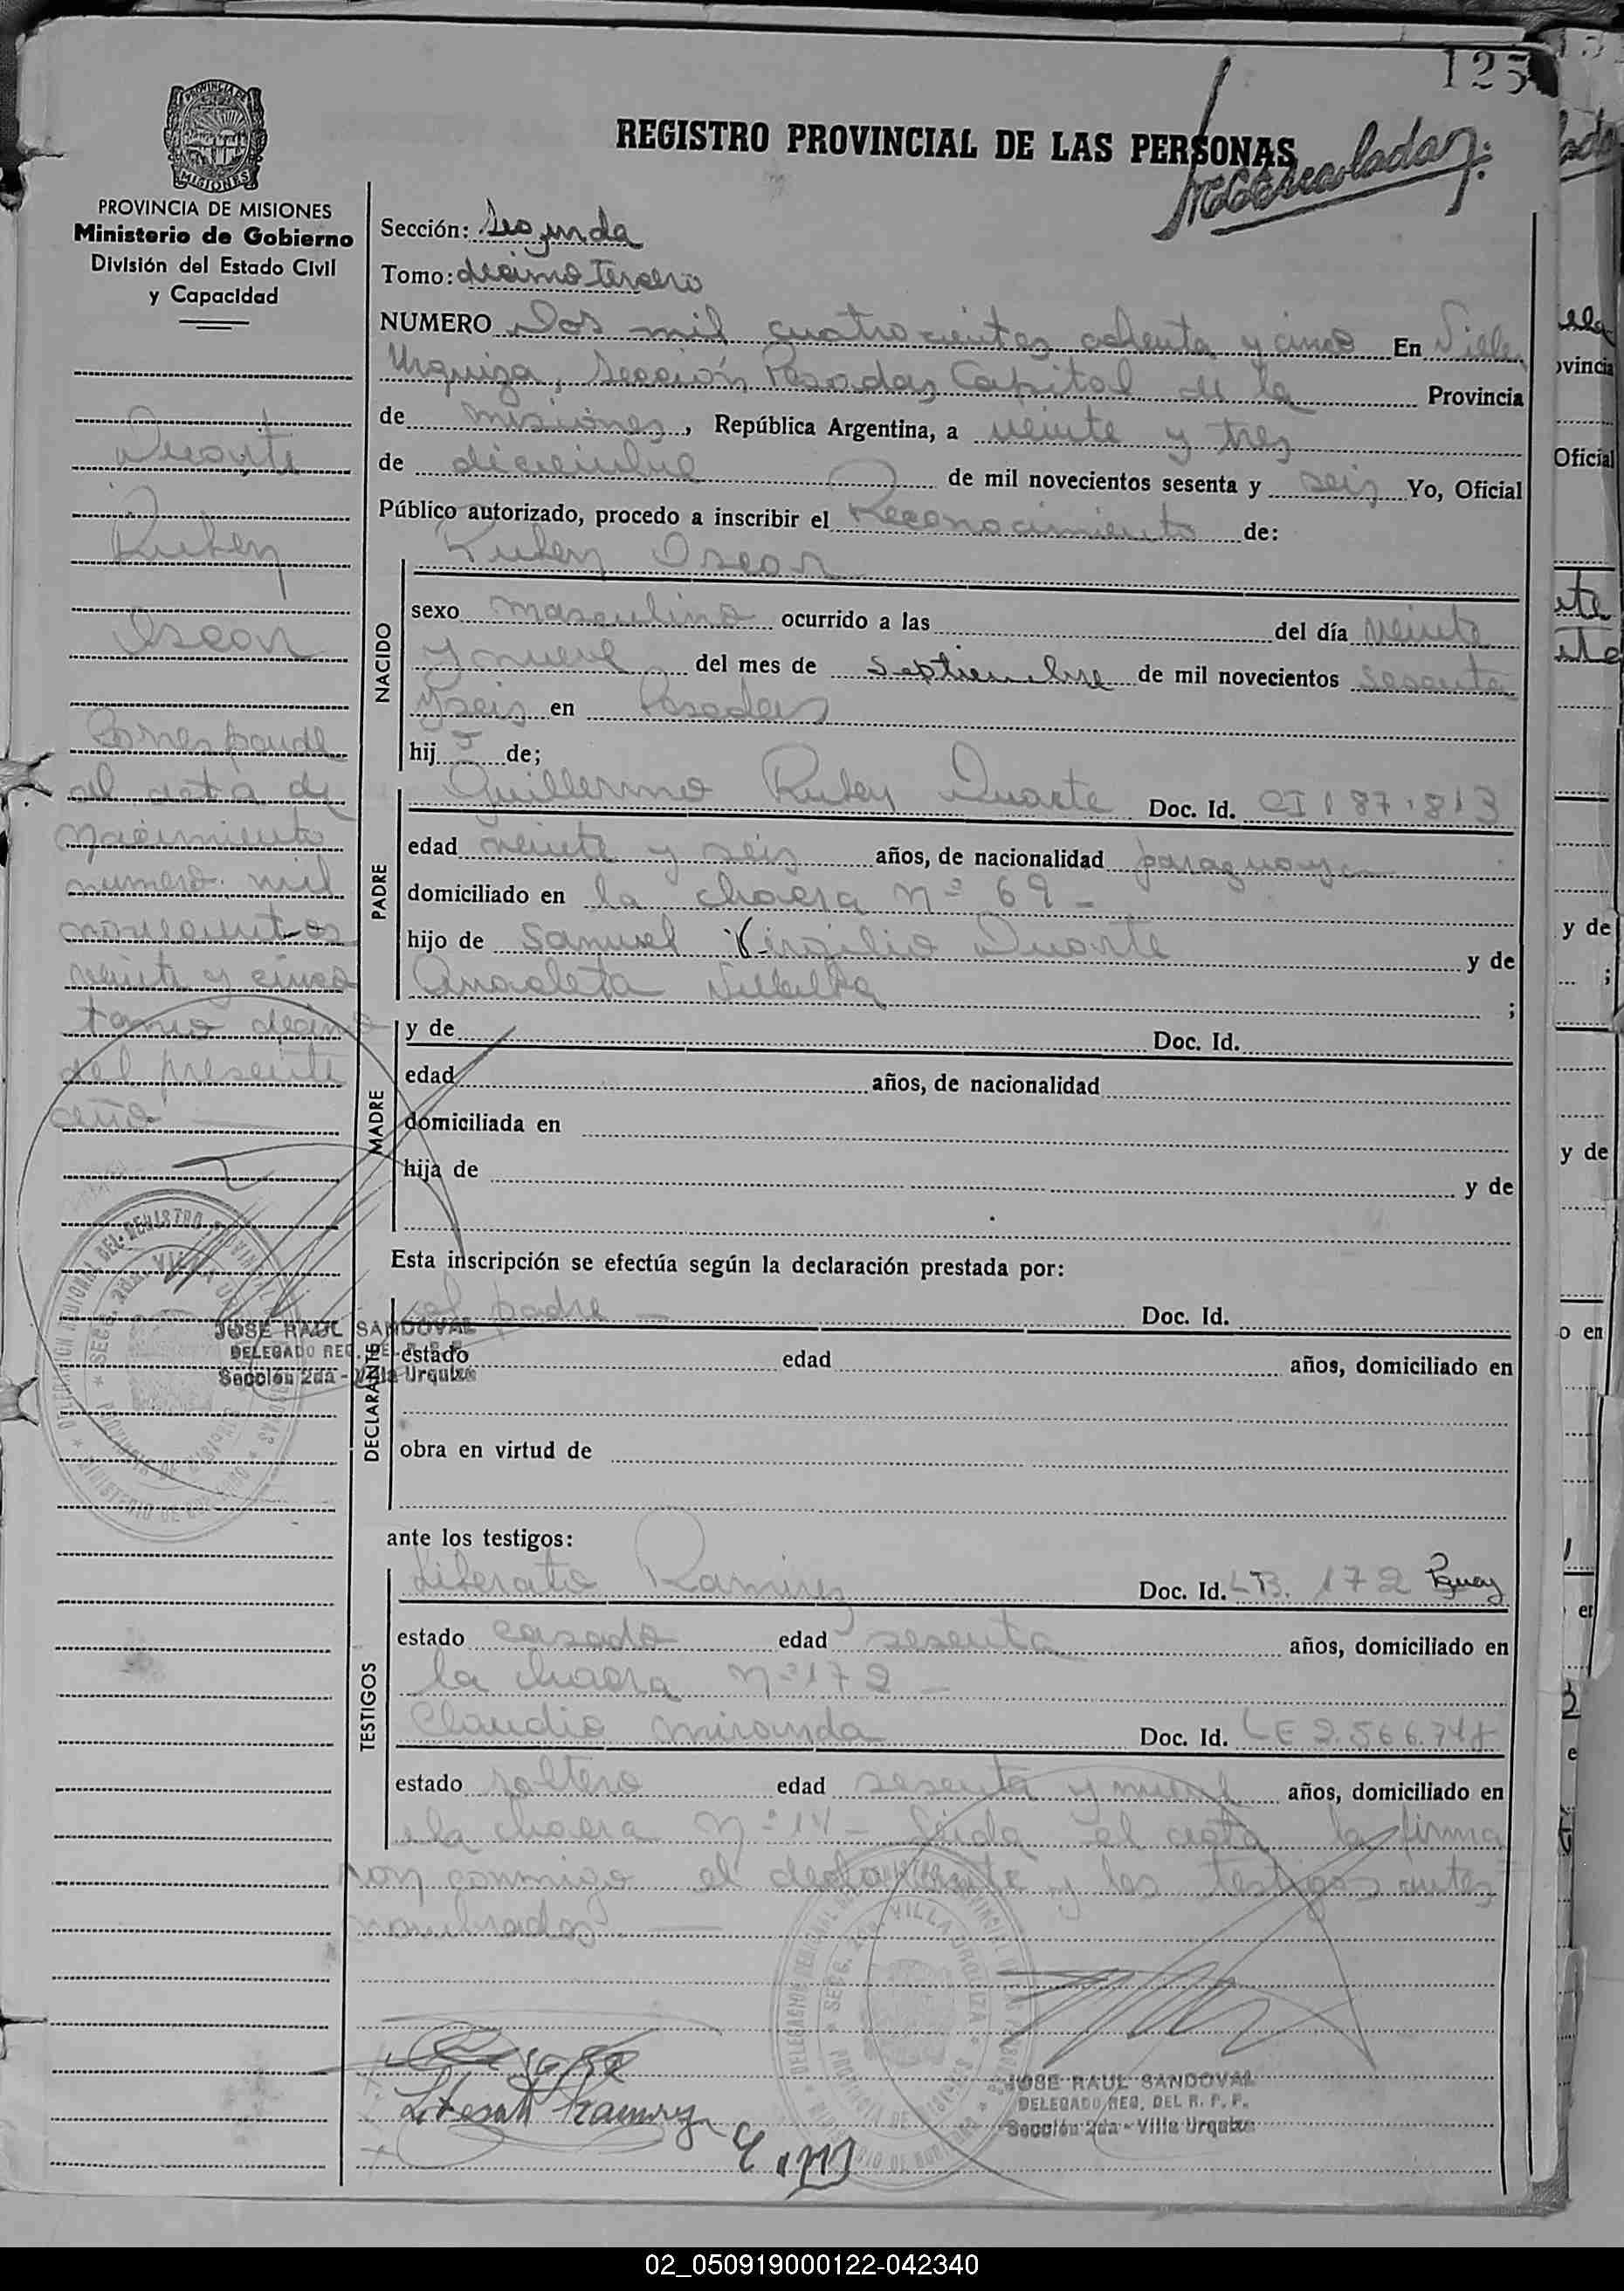 125
PROVINCIA DE MISIONES
REGISTRO PROVINCIAL DE LAS PERSONAS
PROVINCIA DE MISIONES
Ministerio de Gobierno
División del Estado Civil
y Capacidad
Duarte
Ruben
Oscar
Corresponde
al acta de
nacimiento
numero mil
novecientos
veinte y cinco
tomo decimo
del presente
año
JOSE RAUL SANDOVAL
DELEGADO REG. DEL R. P. P.
Sección 2da - Villa Urquiza
Sección: Segunda
Tomo: decimo tercero
NUMERO Dos mil cuatrocientos ochenta y cinco En Villa
Urquiza, Sección Posadas Capital de la Provincia
de misiones, República Argentina, a veinte y tres
de diciembre de mil novecientos sesenta y seis Yo, Oficial
Público autorizado, procedo a inscribir el Reconocimiento de:
Ruben Oscar
NACIDO
sexo masculino ocurrido a las del día veinte
y nueve del mes de septiembre de mil novecientos sesenta
y seis en Posadas
hij o de;
PADRE
Guillermo Ruben Duarte Doc. Id. CI 187.813
edad veinte y seis años, de nacionalidad paraguaya
domiciliado en la chacra nº 69 -
hijo de Samuel Virgilio Duarte y de
Anacleta ;
MADRE
y de Doc. Id.
edad años, de nacionalidad
domiciliada en
hija de y de
Esta inscripción se efectúa según la declaración prestada por:
DECLARANTE
el padre — Doc. Id.
estado edad años, domiciliado en
obra en virtud de
ante los testigos:
TESTIGOS
Liberato Ramirez Doc. Id. LB. 172 Pguay
estado casado edad sesenta años, domiciliado en
la chacra nº 172 -
Claudio miranda Doc. Id. LE 2.566.748
estado soltero edad sesenta y nueve años, domiciliado en
la chacra nº 14 - Leida el acta la firma
ron conmigo el declarante y los testigos antes
nombrados. —
Liberato Ramirez
JOSE RAUL SANDOVAL
DELEGADO REG. DEL R. P. P.
Sección 2da - Villa Urquiza
02_050919000122-042340